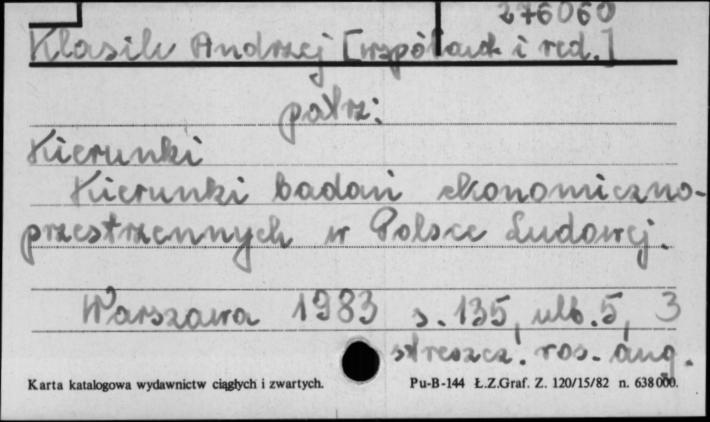 276060
Klasik Andrzej [współaut i red.]
patrz:
Kierunki
Kierunki badań ekonomiczno-
przestrzennych w Polsce Ludowej.
Warszawa 1983 s. 135, ulb. 5, 3
streszcz. ros. ang.
Karta katalogowa wydawnictw ciągłych i zwartych. Pu-B-144 Ł.Z.Graf. Z. 120/15/82 n. 638000.